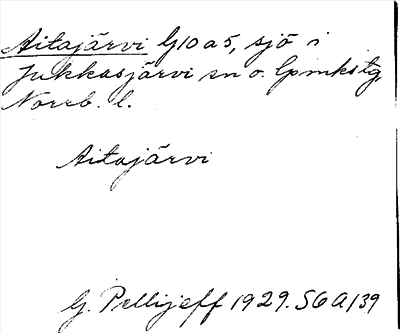 Aitajärvi G10a5, sjö i
Jukkasjärvi sn o. lpmkstg,
Norrb. l.
Aitajärvi
G. Pellijeff 1929. S6A139